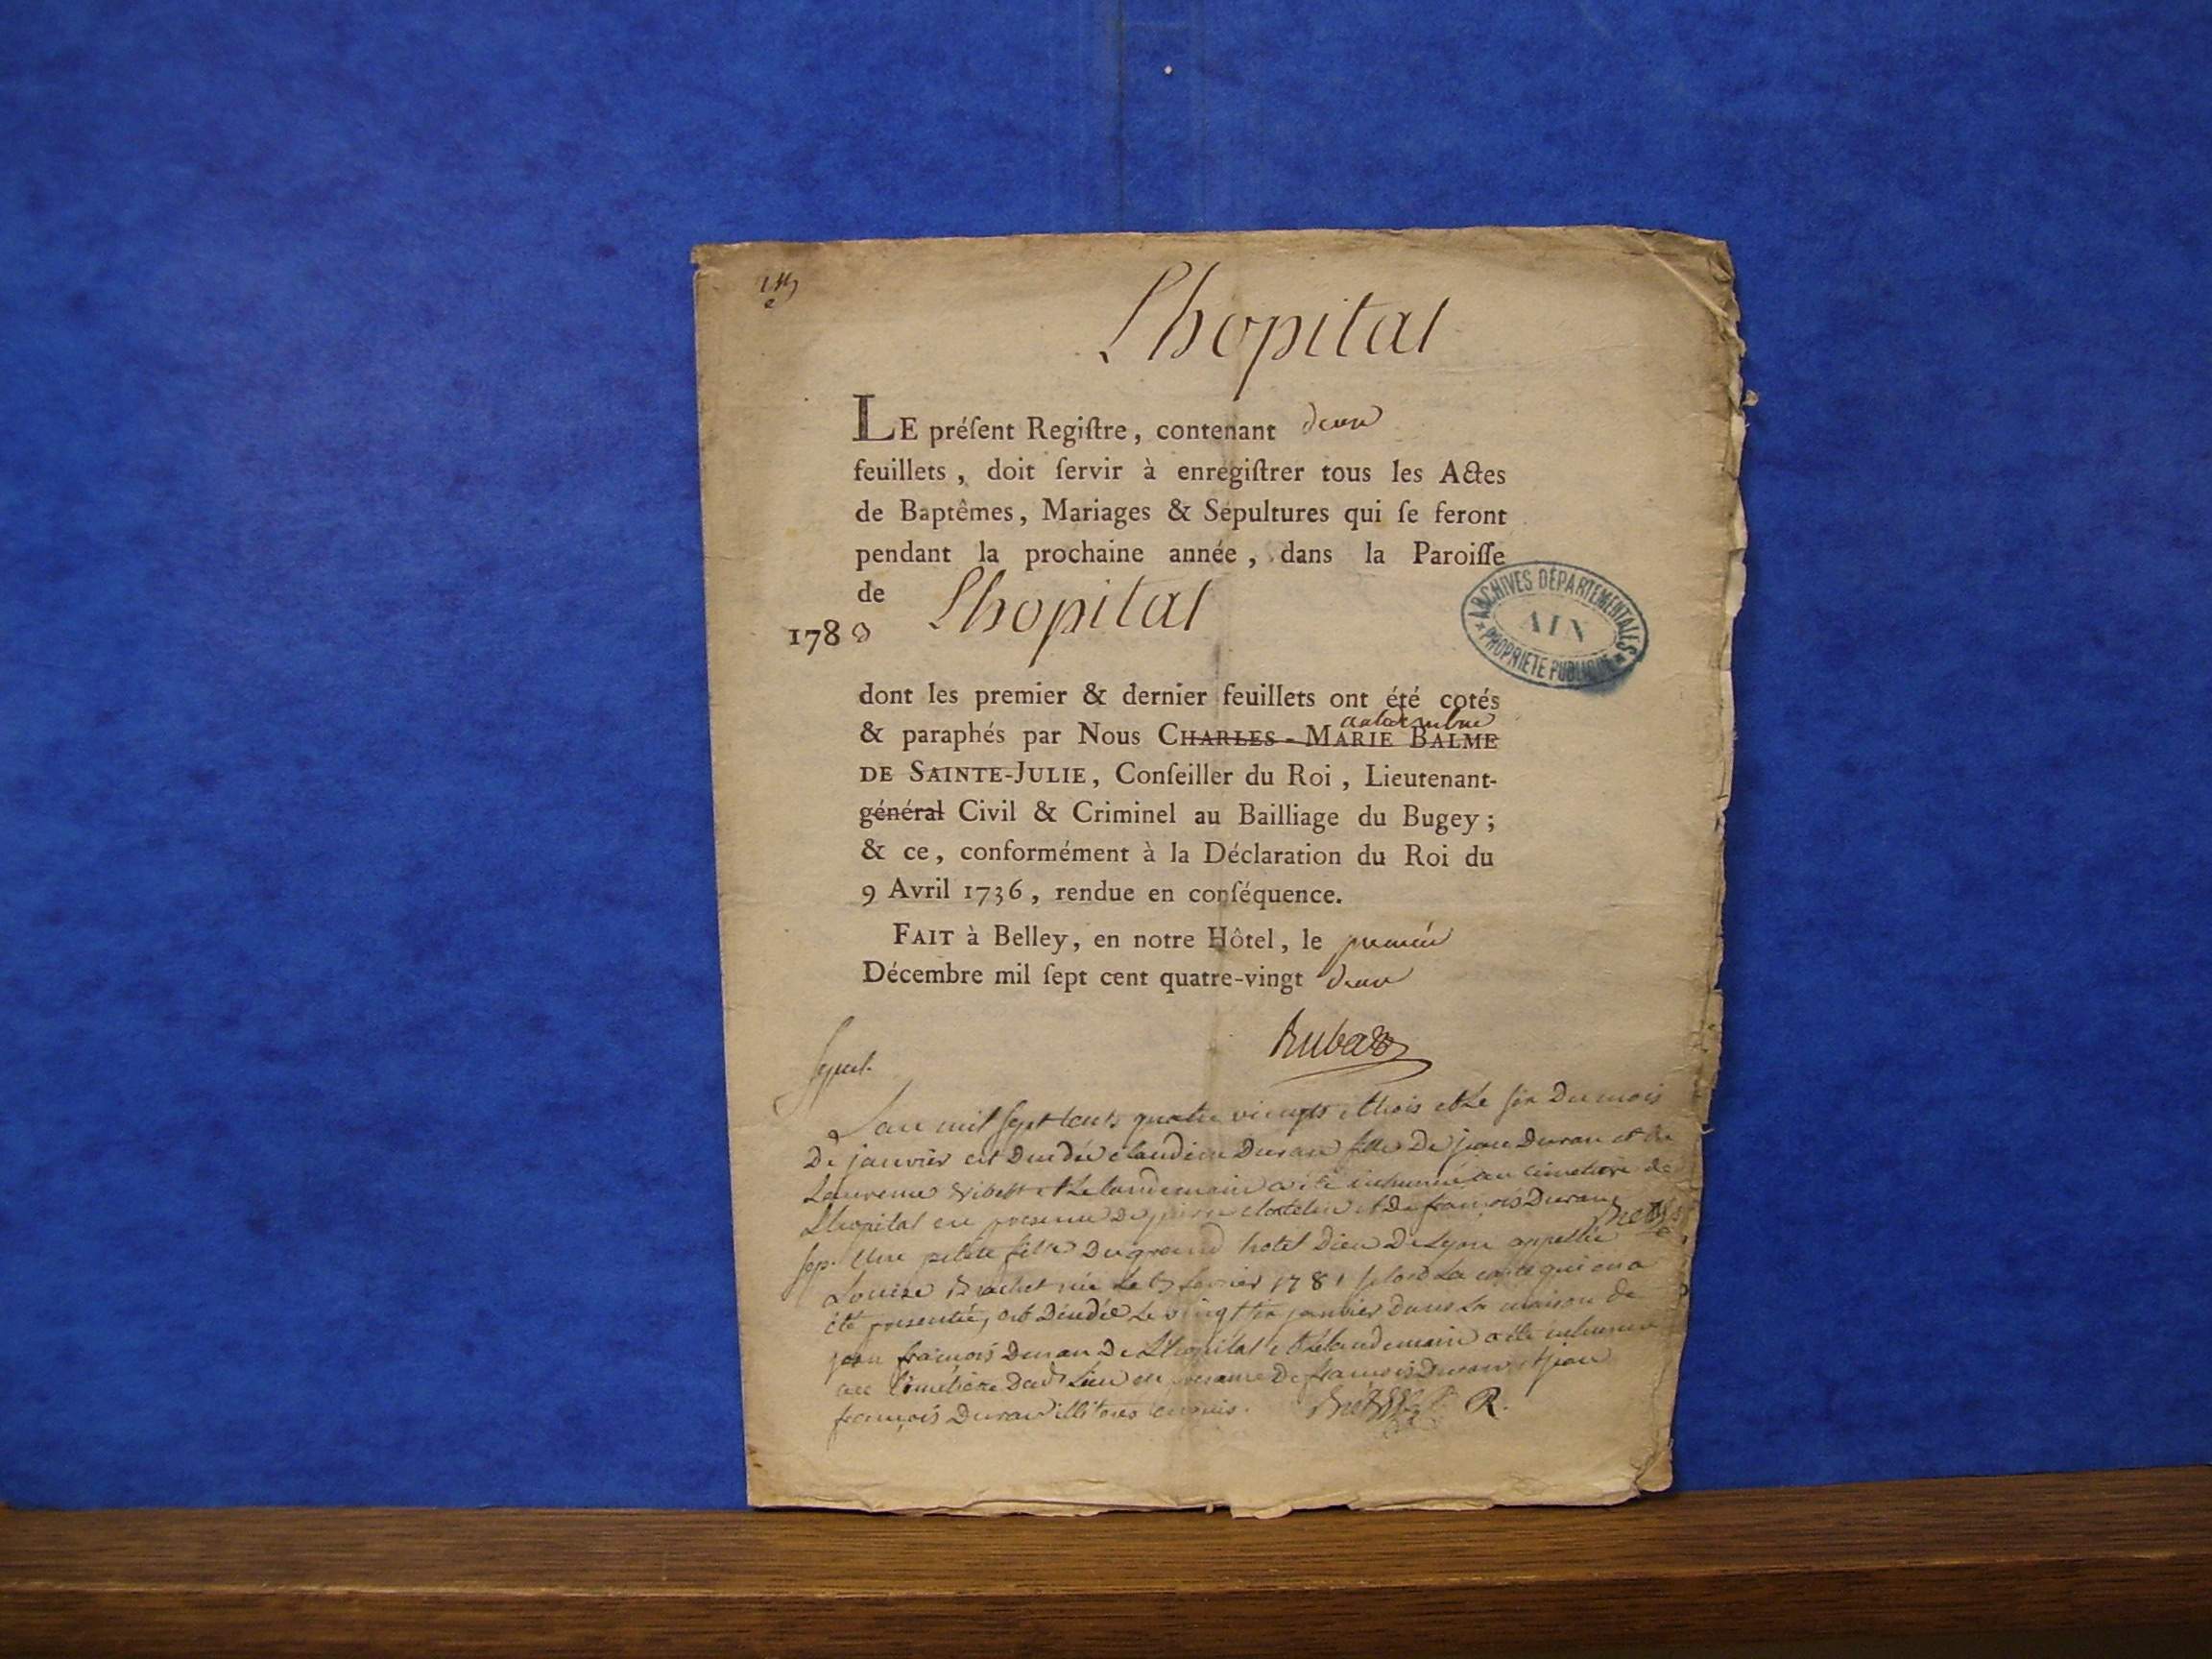 Lhopital
LE préſent Regiſtre, contenant deux
feuillets, doit ſervir à enregiſtrer tous les Actes
de Baptêmes, Mariages & Sépultures qui ſe feront
pendant la prochaine année, dans la Paroiſſe
de Lhopital
1783
ARCHIVES DÉPARTEMENTALES
AIN
PROPRIÉTÉ PUBLIQUE
dont les premier & dernier feuillets ont été cotés
& paraphés par Nous CHARLES-MARIE BALME
DE SAINTE-JULIE, Conſeiller du Roi, Lieutenant-
général Civil & Criminel au Bailliage du Bugey;
& ce, conformément à la Déclaration du Roi du
9 Avril 1736, rendue en conſéquence.
FAIT à Belley, en notre Hôtel, le premier
Décembre mil ſept cent quatre-vingt deux
Sepul.
Lan mil sept cents quatre vingts et trois et le six du mois
De janvier est Duran fille De jean Duran et de
et le landemain a été inhumé au cimetiere de
Lhopital en presence De et De françois Duran
sep. Une petite fille Du grand hotel Dieu De Lyon appellée
Louise née le fevrier 1781 selon la qui en a
été presentée, est Décédée le vingt six janvier dans la maison de
jean françois Duran De Lhopital et le landemain a été inhumée
au Cimetiere Dud. Lieu en presence De françois Duran et jean
françois Duran illiteres enquis. R.